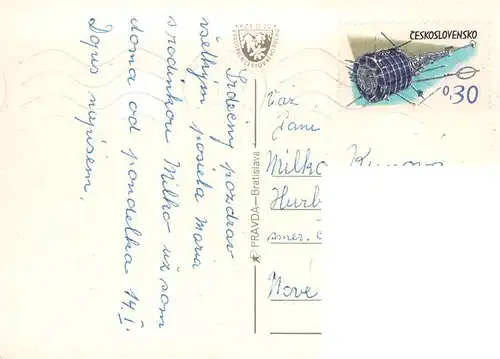 Srdečný pozdrav
všetkým posiela Mária
s rodinkou Milko už som
doma od pondelka 14.I.
Dopis napíšem.
PRAVDA — Bratislava
ČESKOSLOVENSKO
0,30
Váž.
Pani
Milk
Hurb
Nové